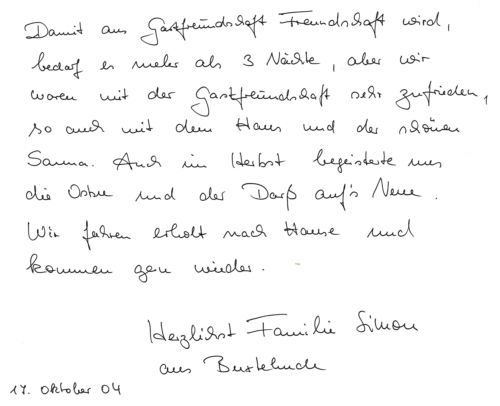 Damit aus Gastfreundschaft Freundschaft wird,
bedarf es mehr als 3 Nächte, aber wir
waren mit der Gastfreundschaft sehr zufrieden,
so auch mit dem Haus und der schönen
Sauna. Auch im Herbst begeisterte uns
die Ostsee und der Darß auf's Neue.
Wir fahren erholt nach Hause und
kommen gern wieder.
Herzlichst Familie Simon
aus Buxtehude
17. Oktober 04